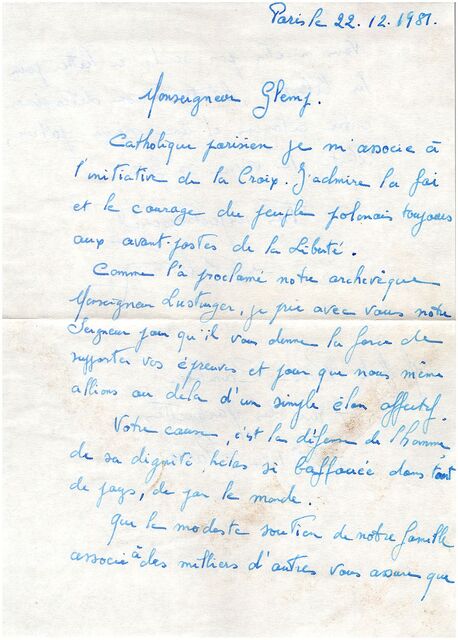 Paris le 22.12.1981.
Monseigneur Glemp.
Catholique parisien je m'associe à
l'initiative de la Croix. J'admire la foi
et le courage du peuple polonais toujours
aux avant-postes de la Liberté.
Comme l'à proclamé notre archevêque
Monseigneur Lustinger, je prie avec vous notre
Seigneur pour qu'il vous donne la force de
supporter vos épreuves et pour que nous même
allions au delà d'un simple élan affectif.
Votre cause, c'est la défense de l'homme,
de sa dignité, hélas si baffouée dans tant
de pays, de par le monde.
Que le modeste soutien de notre famille
associé à des milliers d'autres vous assure que